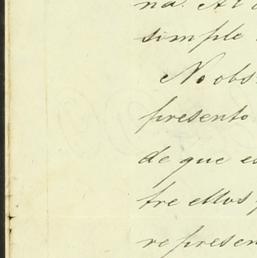 na. Al
simple
No obs
presento
de que es
tre ellos
represen